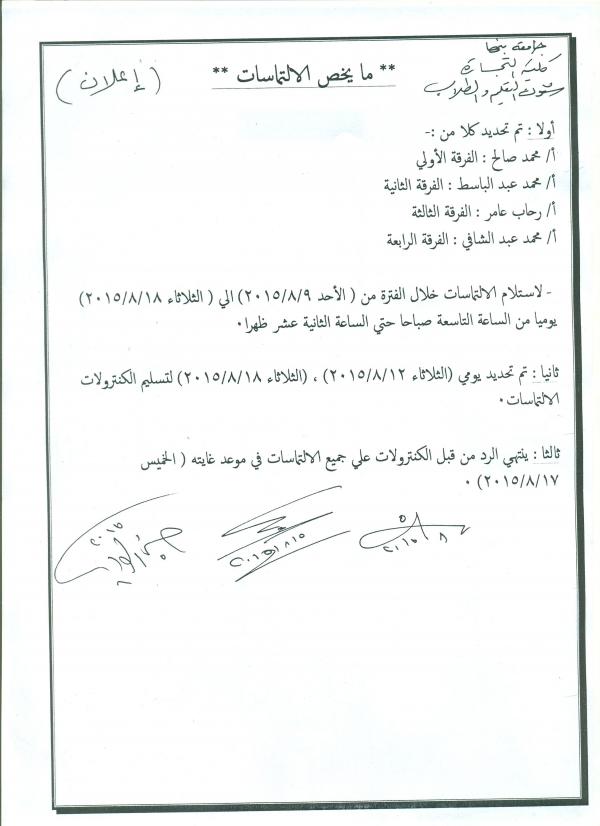 جامعة بنها
كلية التجارة
شئون التعليم والطلاب
** ما يخص الالتماسات **
( إعلان )
أولا : تم تحديد كلا من :-
أ/ محمد صالح : الفرقة الأولي
أ/ محمد عبد الباسط : الفرقة الثانية
أ/ رحاب عامر : الفرقة الثالثة
أ/ محمد عبد الشافي : الفرقة الرابعة
- لاستلام الالتماسات خلال الفترة من ( الأحد ٢٠١٥/٨/٩) الي ( الثلاثاء ٢٠١٥/٨/١٨)
يوميا من الساعة التاسعة صباحا حتي الساعة الثانية عشر ظهرا٠
ثانيا : تم تحديد يومي (الثلاثاء ٢٠١٥/٨/١٢) ، (الثلاثاء ٢٠١٥/٨/١٨) لتسليم الكنترولات
الالتماسات٠
ثالثا : ينتهي الرد من قبل الكنترولات علي جميع الالتماسات في موعد غايته ( الخميس
٢٠١٥/٨/١٧) ٠